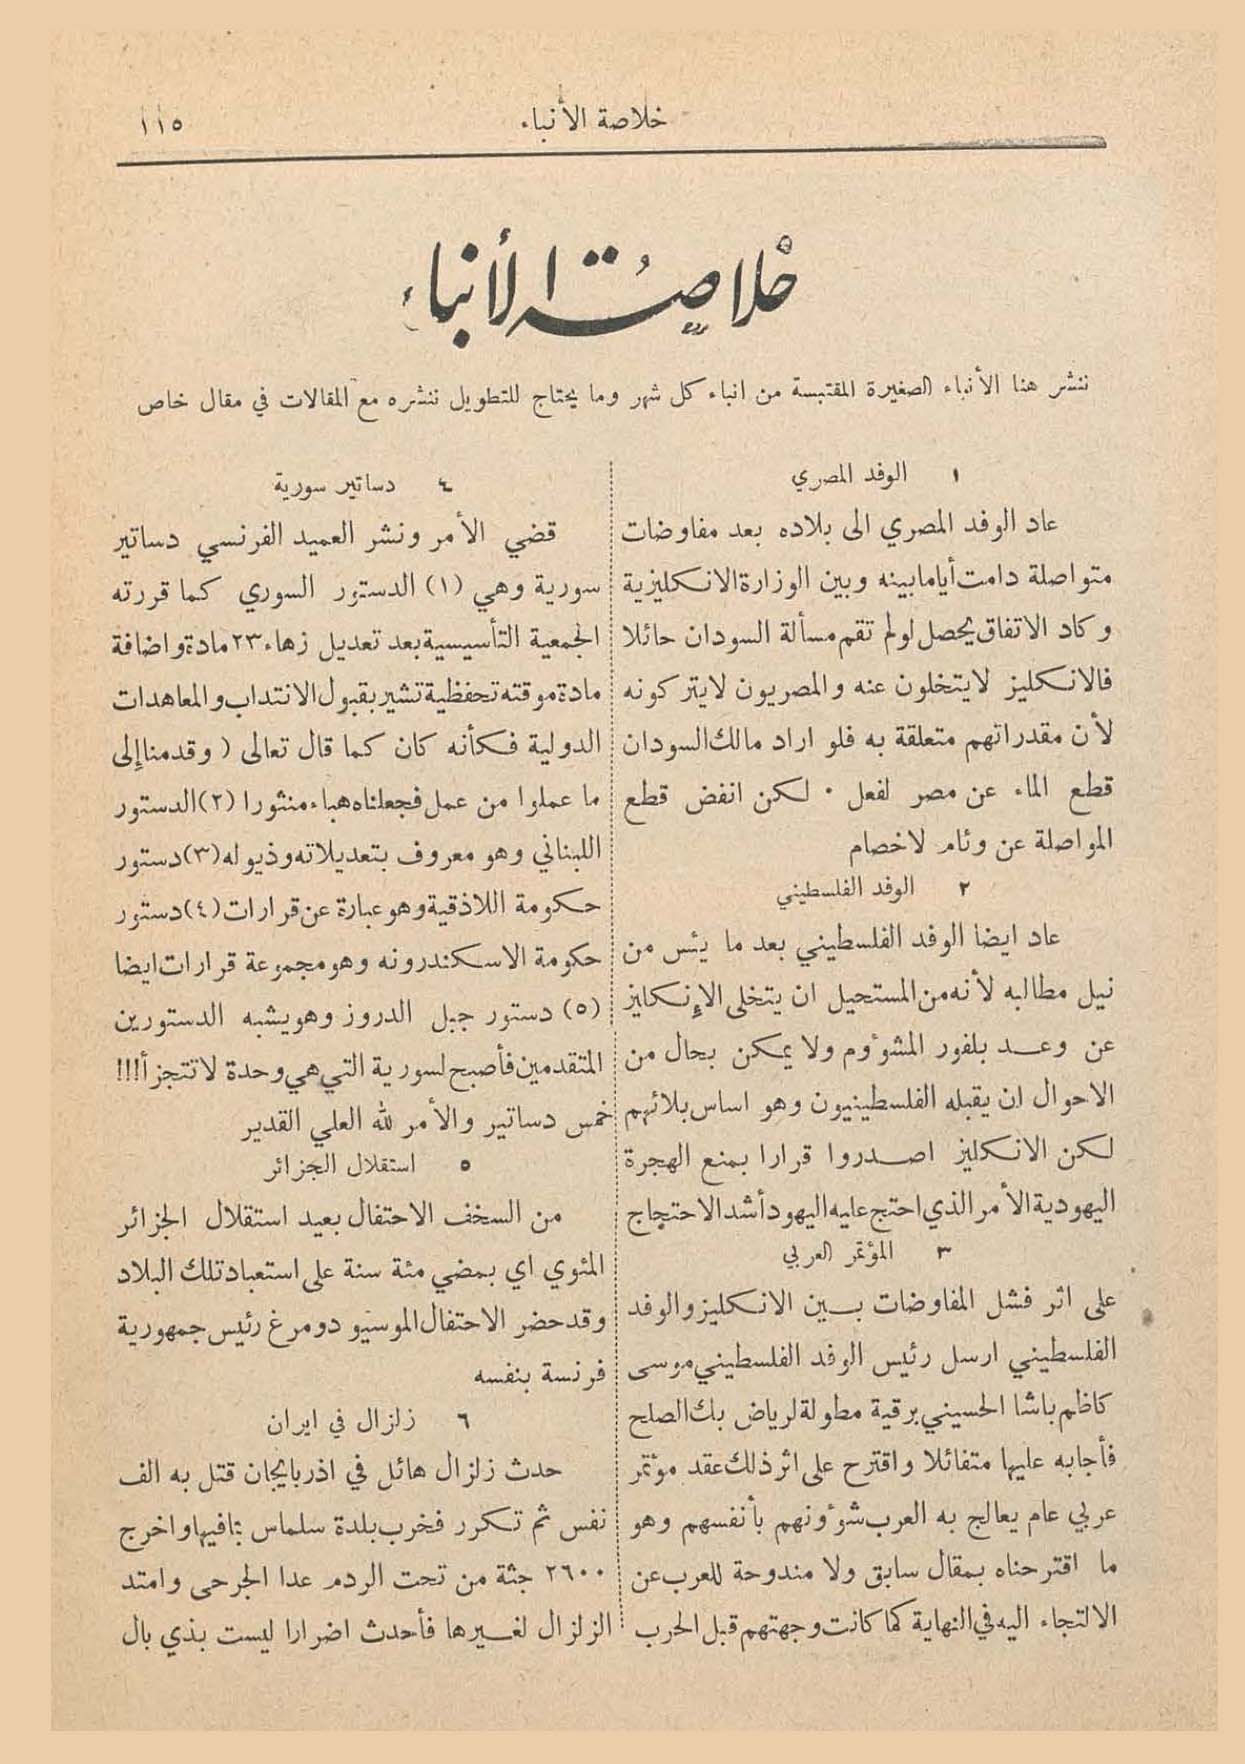 خلاصة الأنباء
١١٥
خلاصة الأنباء
ننشر هنا الأنباء الصغيرة المقتبسة من انباء كل شهر وما يحتاج للتطويل ننشره مع المقالات في مقال خاص
١ الوفد المصري
عاد الوفد المصري الى بلاده بعد مفاوضات
متواصلة دامت أياما بينه وبين الوزارة الانكليزية
وكاد الاتفاق يحصل لولم تقم مسألة السودان حائلا
فالانكليز لا يتخلون عنه والمصريون لا يتركونه
لأن مقدراتهم متعلقة به فلو اراد مالك السودان
قطع الماء عن مصر لفعل . لكن انفض قطع
المواصلة عن وئام لا خصام
٢ الوفد الفلسطيني
عاد ايضا الوفد الفلسطيني بعد ما يئس من
نيل مطالبه لأنه من المستحيل ان يتخلى الإنكليز
عن وعد بلفور المشؤوم ولا يمكن بحال من
الاحوال ان يقبله الفلسطينيون وهو اساس بلائهم
لكن الانكليز اصدروا قرارا بمنع الهجرة
اليهودية الأمر الذي احتج عليه اليهود أشد الاحتجاج
٣ المؤتمر العربي
على اثر فشل المفاوضات بين الانكليز والوفد
الفلسطيني ارسل رئيس الوفد الفلسطيني موسى
كاظم باشا الحسيني برقية مطولة لرياض بك الصلح
فأجابه عليها متفائلا واقترح على اثر ذلك عقد مؤتمر
عربي عام يعالج به العرب شؤونهم بأنفسهم وهو
ما اقترحناه بمقال سابق ولا مندوحة للعرب عن
الالتجاء اليه في النهاية كما كانت وجهتهم قبل الحرب
٤ دساتير سورية
قضي الأمر ونشر العميد الفرنسي دساتير
سورية وهي (١) الدستور السوري كما قررته
الجمعية التأسيسية بعد تعديل زهاء ٢٣ مادة واضافة
مادة موقته تحفظية تشير بقبول الانتداب والمعاهدات
الدولية فكأنه كان كما قال تعالى ( وقدمنا إلى
ما عملوا من عمل فجعلناه هباء منثورا (٢) الدستور
اللبناني وهو معروف بتعديلاته وذيوله (٣) دستور
حكومة اللاذقية وهو عبارة عن قرارات (٤) دستور
حكومة الاسكندرونه وهو مجموعة قرارات ايضا
(٥) دستور جبل الدروز وهو يشبه الدستورين
المتقدمين فأصبح لسورية التي هي وحدة لا تتجزأ!!!
خمس دساتير والأمر لله العلي القدير
٥ استقلال الجزائر
من السخف الاحتفال بعيد استقلال الجزائر
المئوي اي بمضي مئة سنة على استعباد تلك البلاد
وقد حضر الاحتفال الموسيو دومرغ رئيس جمهورية
فرنسة بنفسه
٦ زلزال في ايران
حدث زلزال هائل في اذربايجان قتل به الف
نفس ثم تكرر فخرب بلدة سلماس بمافيها واخرج
٢٦٠٠ جثة من تحت الردم عدا الجرحى وامتد
الزلزال لغيرها فأحدث اضرارا ليست بذي بال